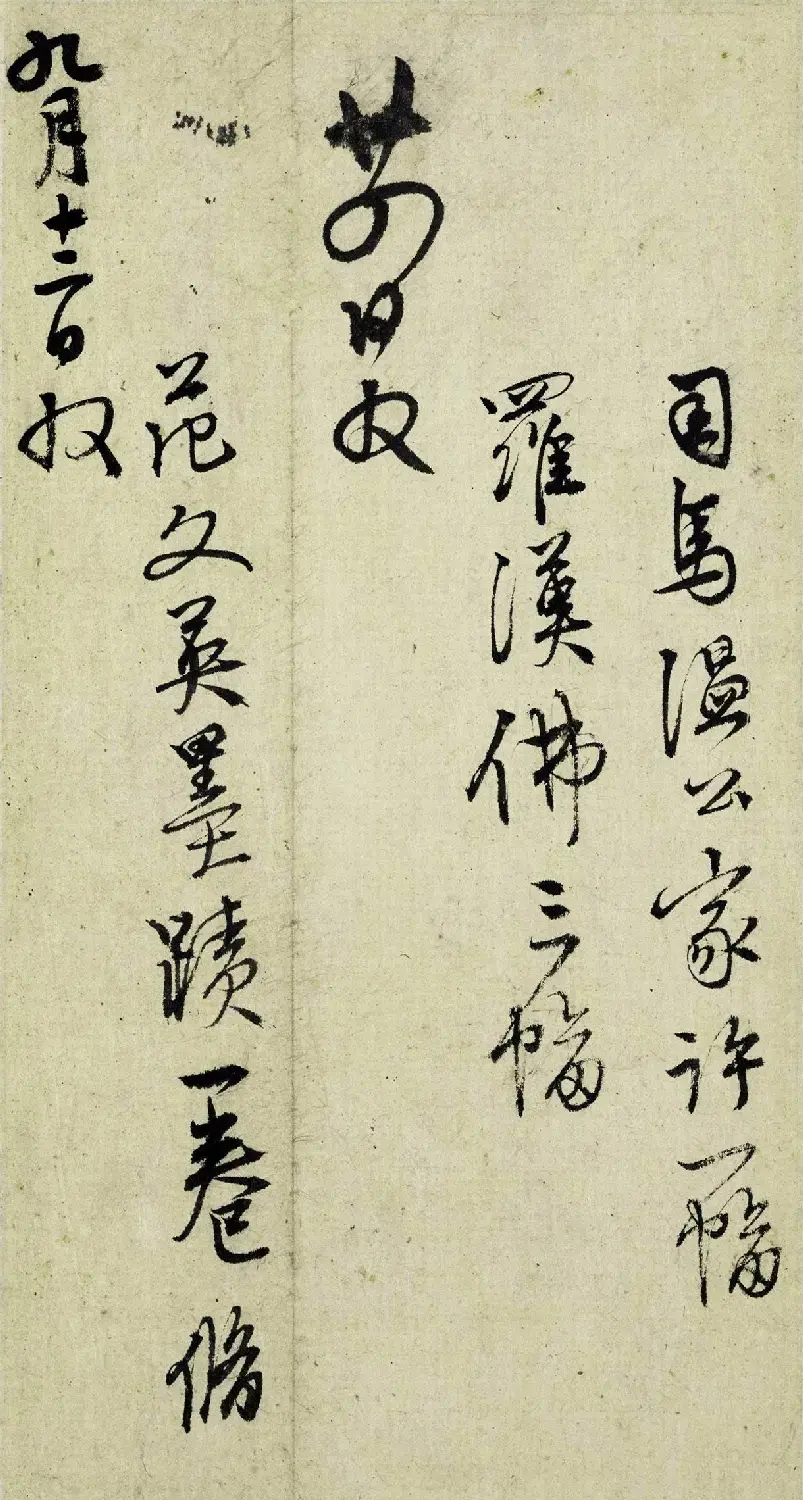 司馬温公家許一幅
羅漢佛三幅
廿四日收
范文英墨蹟一卷 脩
九月十三日收